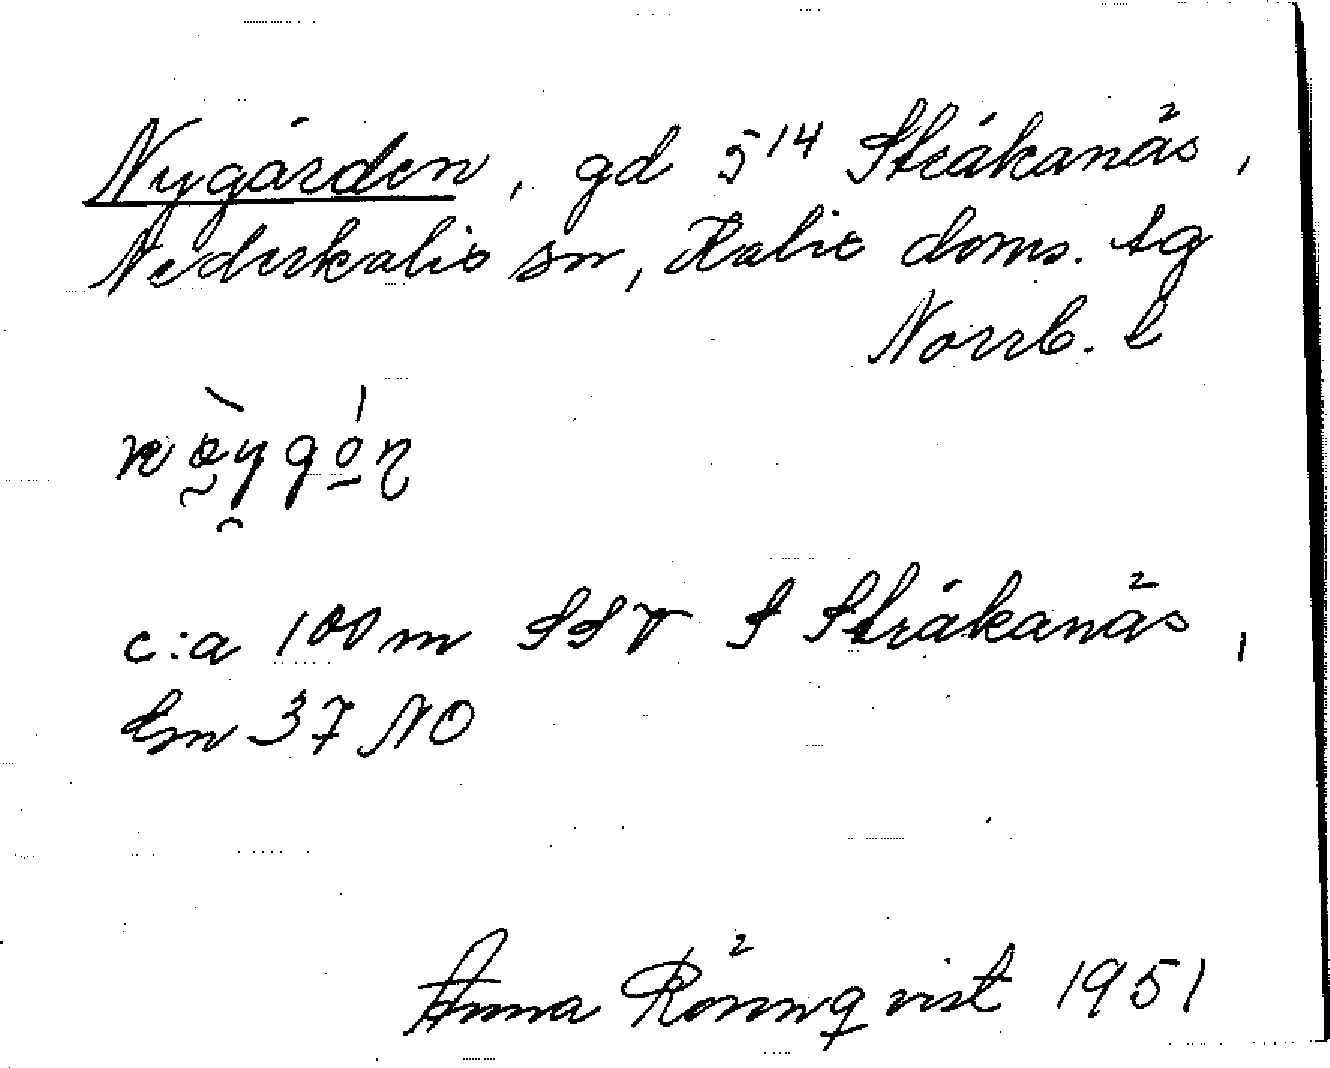 Nygården, gd 5¹⁴ Stråkanäs,
Nederkalix sn, Kalix doms. tg
Norrb. l
c:a 100 m SSV S Stråkanäs,
Em 37 NO
Anna Rönnqvist 1951